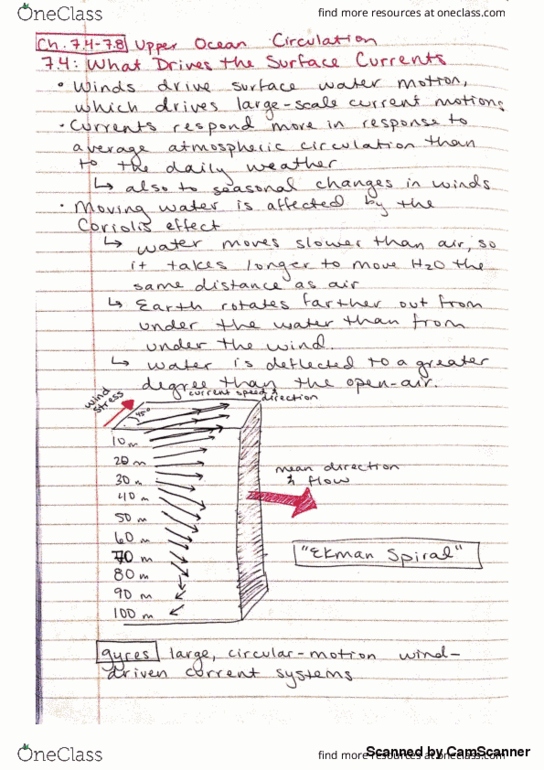 OneClass
find more resources at oneclass.com
Ch. 7.4-7.8 Upper Ocean Circulation
7.4: What Drives the Surface Currents
• Winds drive surface water motion,
which drives large-scale current motion.
• Currents respond more in response to
average atmospheric circulation than
to the daily weather
↳ also to seasonal changes in winds
• Moving water is affected by the
Coriolis effect
↳ water moves slower than air, so
it takes longer to move H2O the
same distance as air
↳ Earth rotates farther out from
under the water than from
under the wind.
↳ water is deflected to a greater
degree than the open-air.
wind stress
current speed &
direction
45°
10 m
20 m
30 m
40 m
50 m
60 m
70 m
80 m
90 m
100 m
mean direction
& flow
"Ekman Spiral"
gyres large, circular-motion wind-
driven current systems
OneClass
find more resources at oneclass.com
Scanned by CamScanner